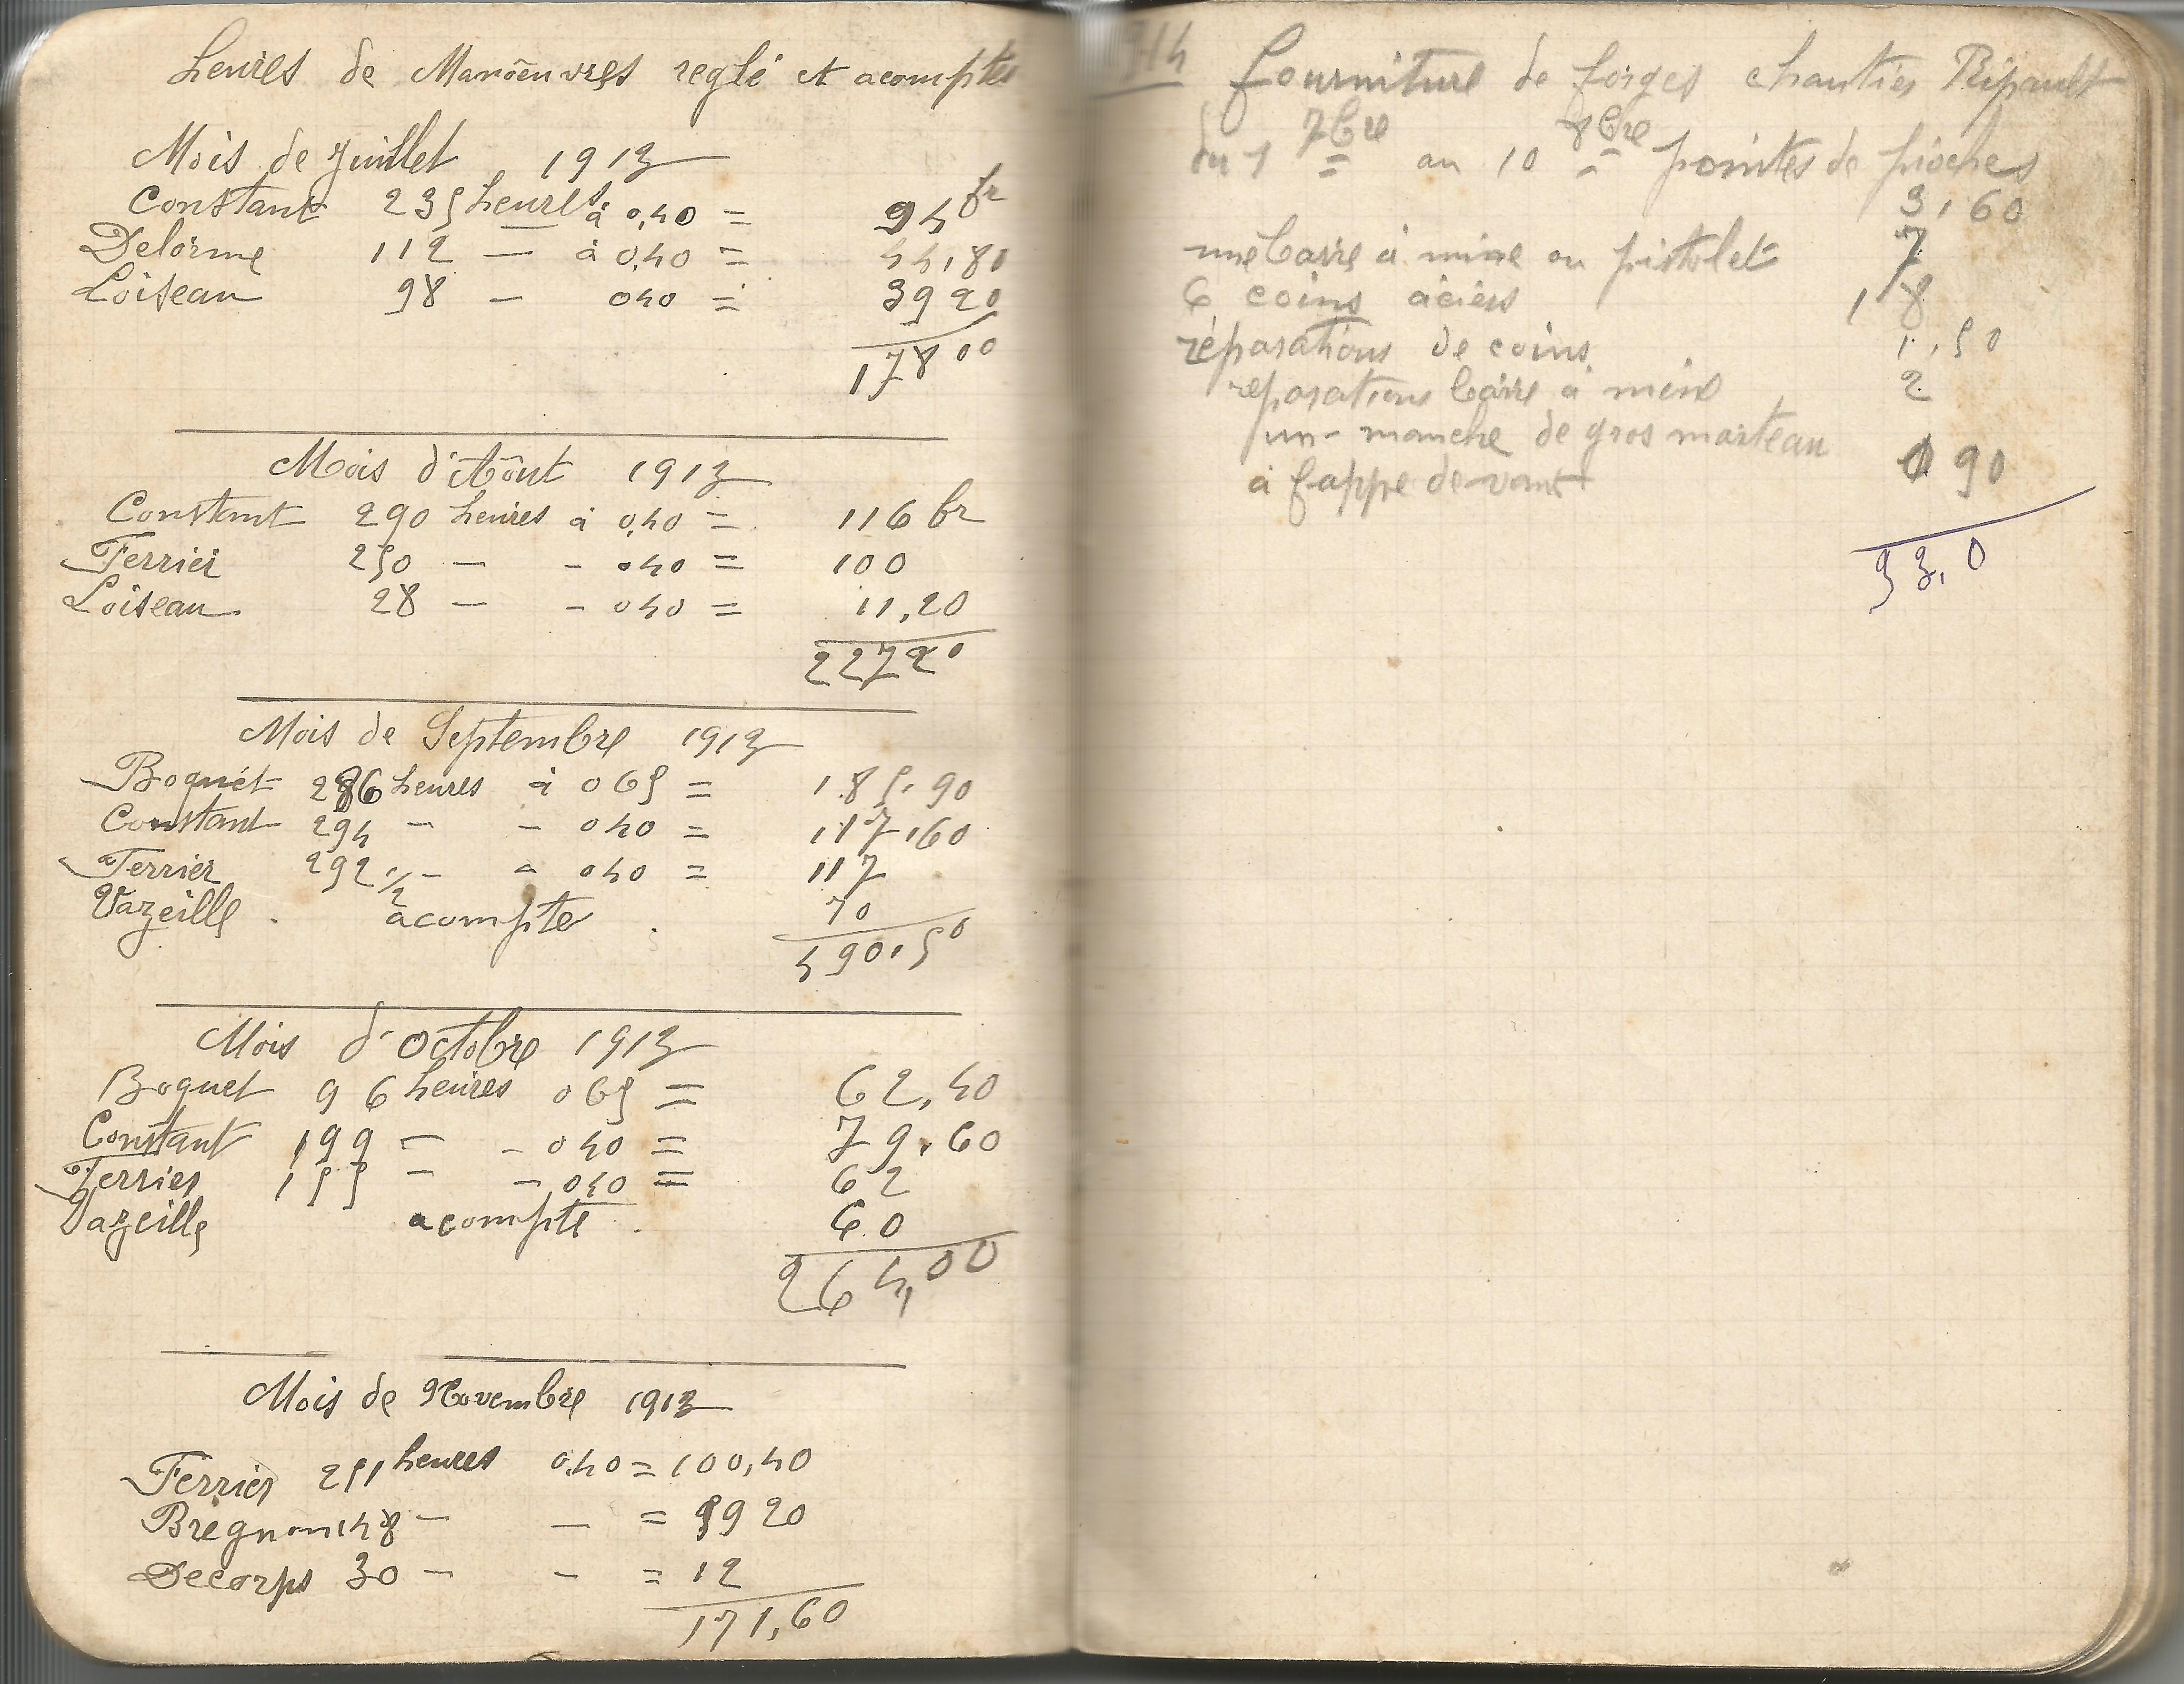 heures de Manoeuvres reglé et acomptes
Mois de Juillet 1913
Constant 235 heures à 0,40 = 94 fr
Delorme 112 — à 0,40 = 44,80
Loiseau 98 — 040 = 39 20
178 00
Mois d'Aôut 1913
Constant 290 heures à 0,40 = 116 fr
Ferrier 250 — - 040 = 100
Loiseau 28 — - 040 = 11,20
227 20
Mois de Septembre 1913
Boquet 286 heures à 065 = 185,90
Constant 294 - - 040 = 117,60
Ferrier 292 1/2 - - 040 = 117
Vazeille. acompte. 70
490,50
Mois d'Octobre 1913
Boquet 96 heures 065 = 62,40
Constant 199 - - 040 = 79,60
Ferrier 155 - - 040 = 62
Vazeille acompte. 60
264,00
Mois de Novembre 1913
Ferrier 251 heures 0,40 = 100,40
Bregnon 148 - — = 59 20
Decorps 30 - - = 12
171,60
fourniture de forges chantier Ripault
du 1 7bre au 10 8bre pointes de pioches
3,60
une barre à mine ou pistolet 7
6 coins aciers 18
réparations de coins 1,50
reparations barre à mine 2
un - manche de gros marteau
à frappe devant 0 90
33,0